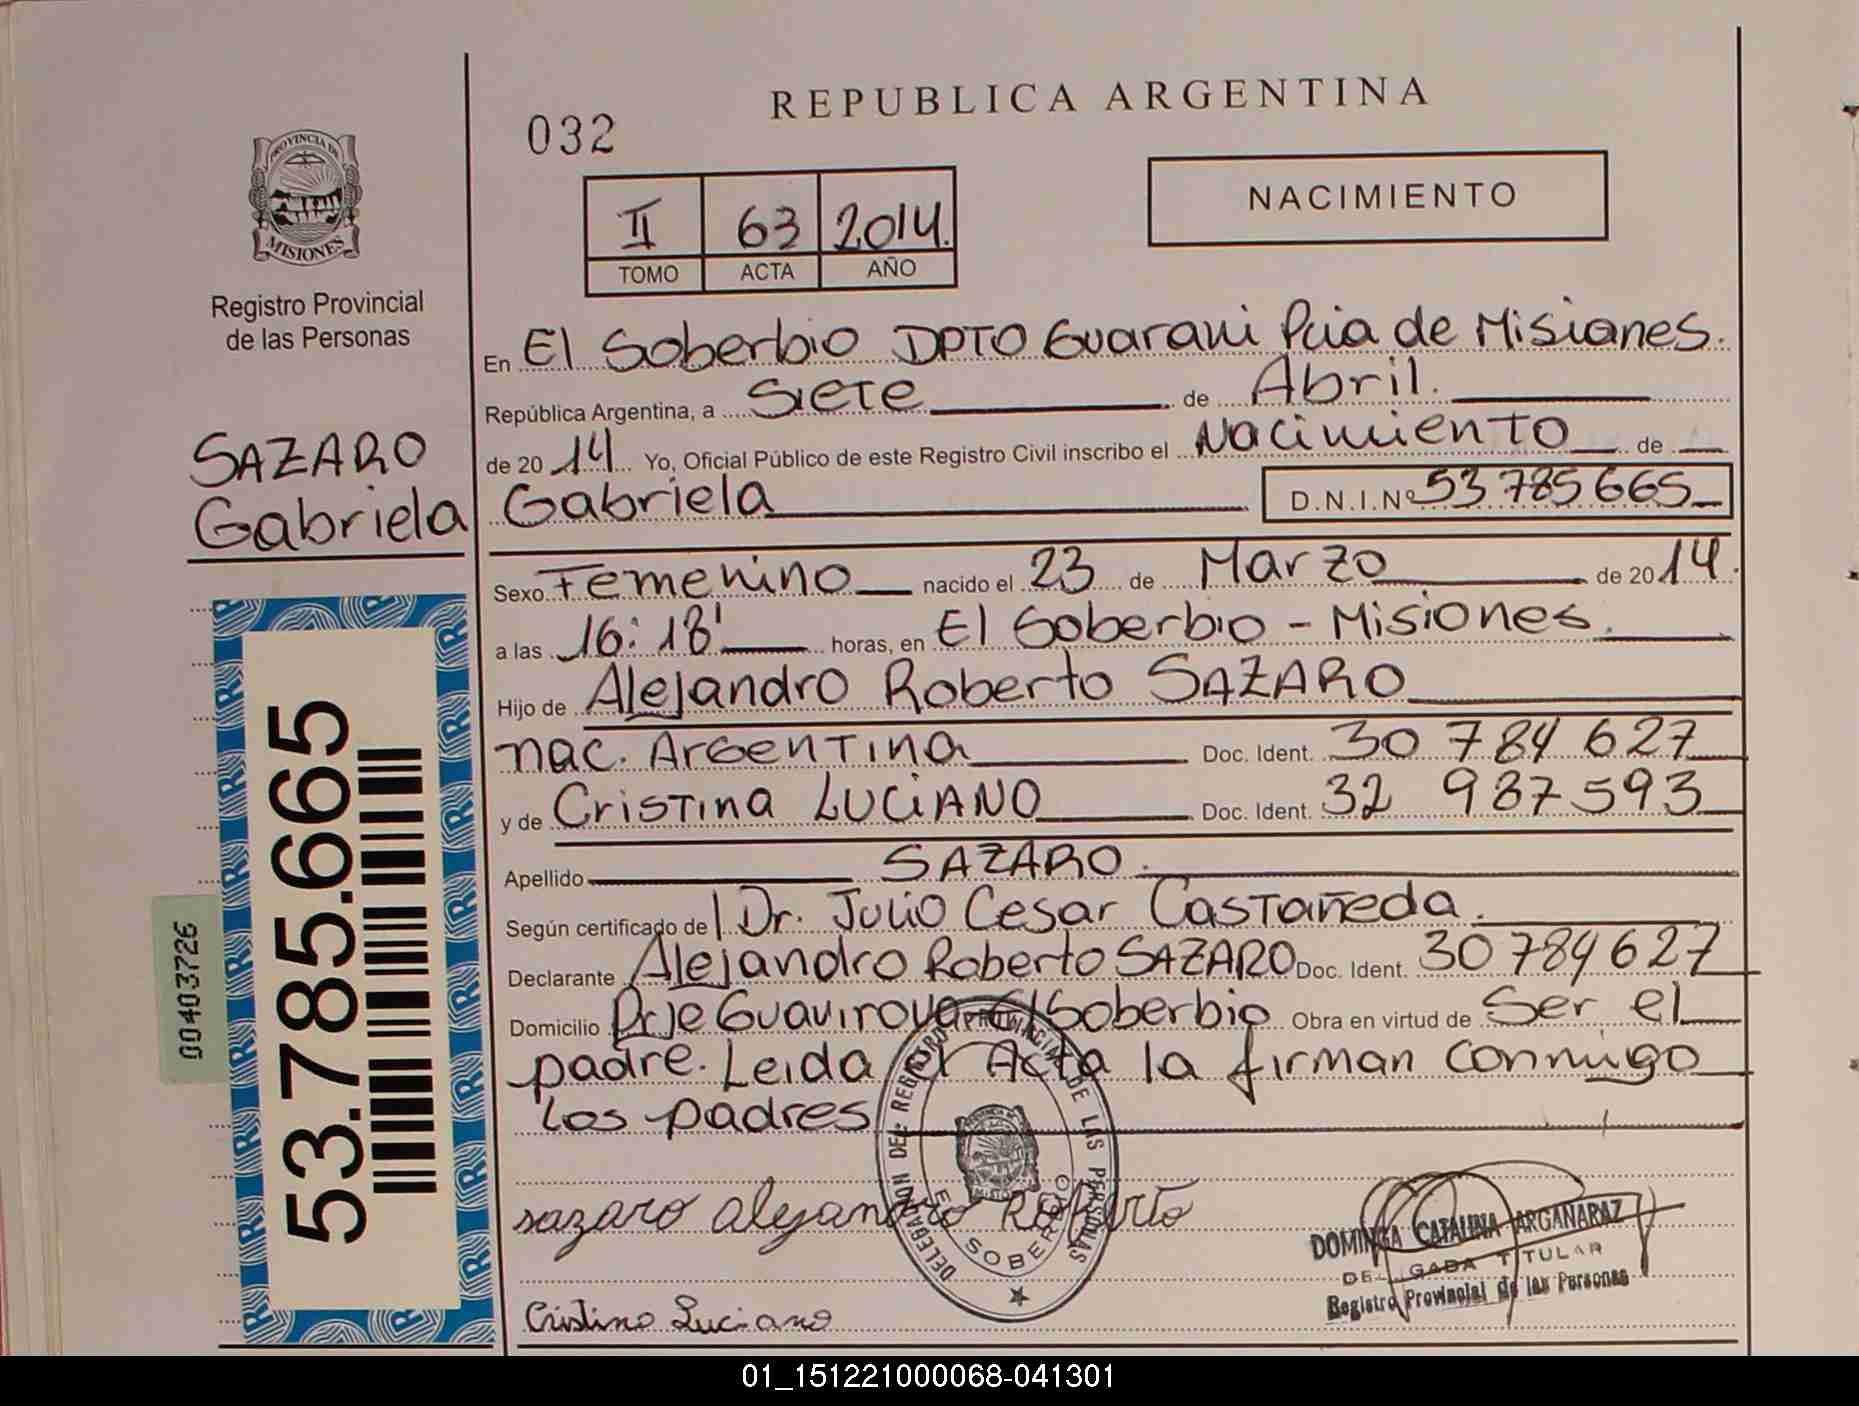 REPUBLICA ARGENTINA
032
NACIMIENTO
II 63 2014.
TOMO ACTA AÑO
PROVINCIA DE
MISIONES
Registro Provincial
de las Personas
SAZARO
Gabriela
53.785.665
00403726
En El Soberbio DPTO Guarani Pcia de Misiones.
República Argentina, a Siete de Abril.
de 20 14 Yo, Oficial Público de este Registro Civil inscribo el Nacimiento de
Gabriela D.N.I.Nº 53 785 665
Sexo Femenino nacido el 23 de Marzo de 20 14.
a las 16:18' horas, en El Soberbio - Misiones.
Hijo de Alejandro Roberto SAZARO
nac. Argentina Doc. Ident. 30 784 627
y de Cristina LUCIANO Doc. Ident. 32 987 593
Apellido SAZARO.
Según certificado de Dr. Julio Cesar Castañeda.
Declarante Alejandro Roberto SAZARO Doc. Ident. 30 784 627
Domicilio Prje Guavirova El Soberbio Obra en virtud de Ser el
padre. Leida el Acta la firman conmigo
los padres
DELEGACION DEL REGISTRO PROVINCIAL DE LAS PERSONAS
EL SOBERBIO
sazaro alejandro Roberto
DOMINGA CATALINA ARGAÑARAZ
DELEGADA TITULAR
Registro Provincial de las Personas
Cristina Luciano
01_151221000068-041301